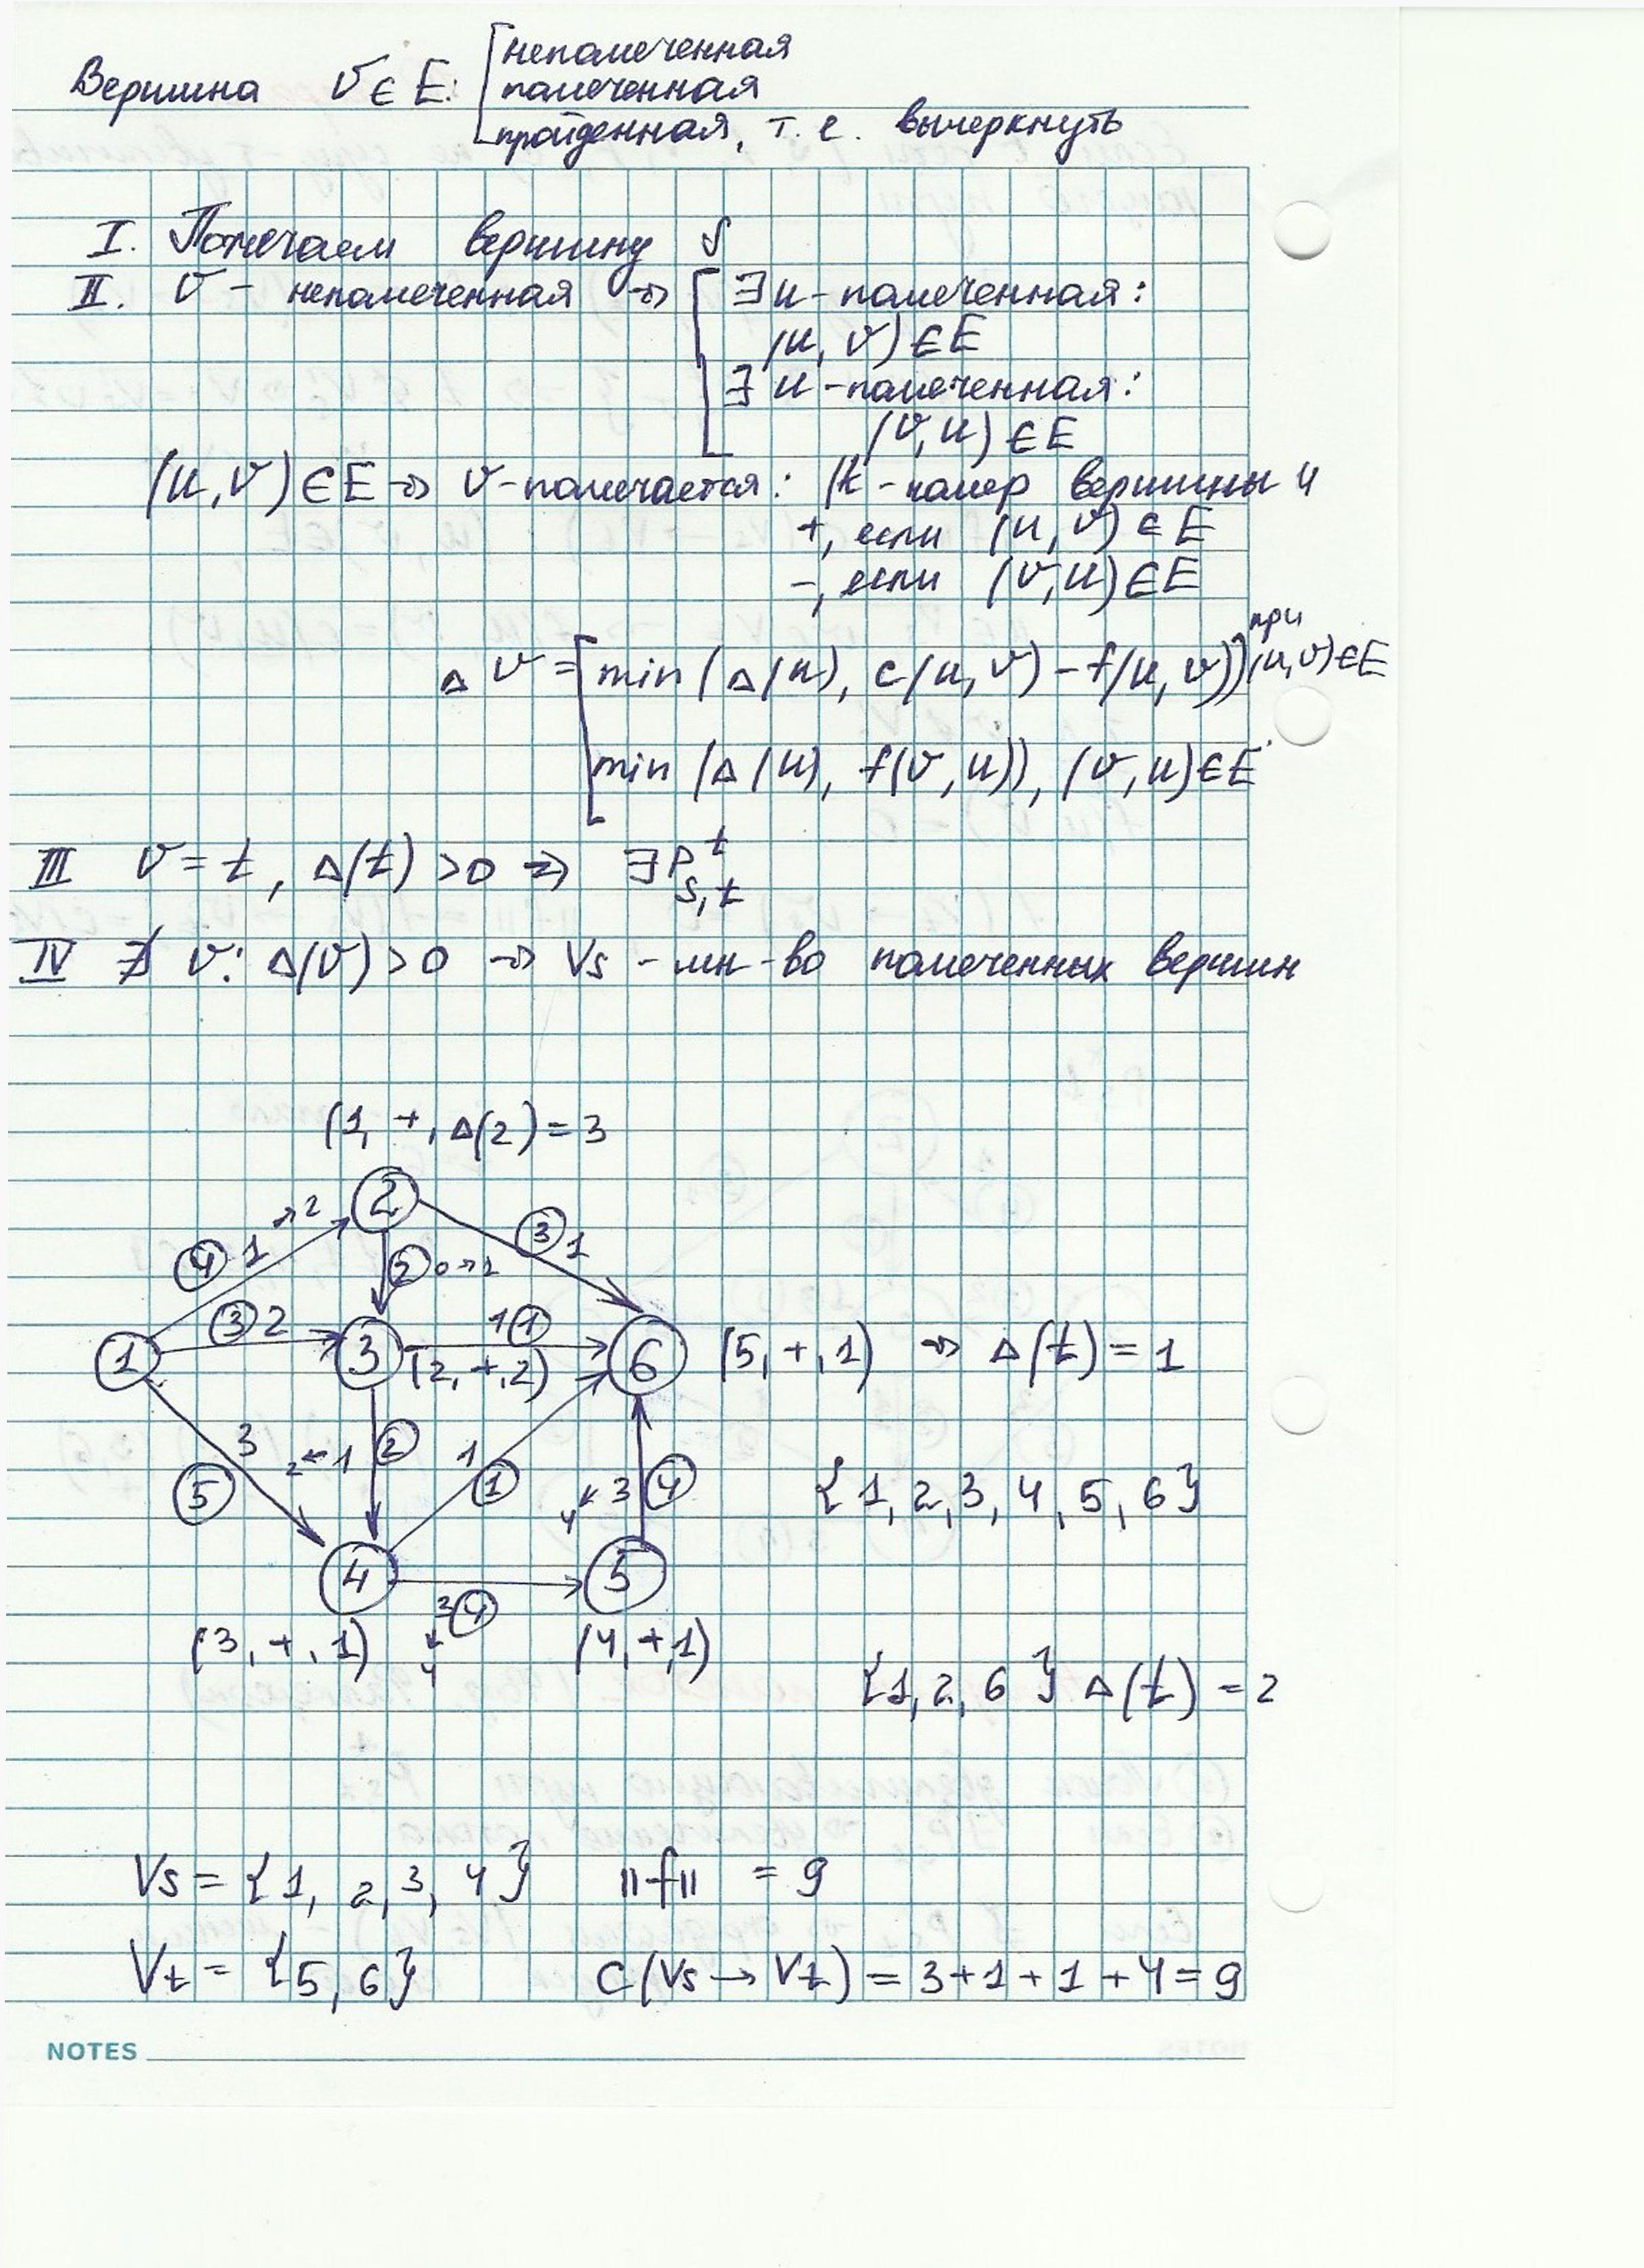 Вершина v ∈ E: [ непомеченная
помеченная
пройденная, т. е. вычеркнуть
I. Помечаем вершину s
II. v – непомеченная ⇒ [ ∃ u – помеченная:
(u, v) ∈ E
∃ u – помеченная:
(v, u) ∈ E
(u, v) ∈ E ⇒ v – помечается: (k – номер вершины u
+, если (u, v) ∈ E
–, если (v, u) ∈ E
Δ v = [ min (Δ(u), c(u, v) – f(u, v)) при (u, v) ∈ E
min (Δ(u), f(v, u)), (v, u) ∈ E
III v = t, Δ(t) > 0 ⇒ ∃ P^t_{s,t}
IV ∄ v: Δ(v) > 0 ⇒ Vs – мн-во помеченных вершин
(1, +, Δ(2) = 3
2
→ 2
4 1
3 1
2 0→1
3 2
1 1
1
3
(2, +, 2)
6
(5, +, 1) ⇒ Δ(t) = 1
3
5
2 ← 1 2
1
1
4 ← 3 4
{1, 2, 3, 4, 5, 6}
4
5
3 4
↓
4
(3, +, 1)
(4, +, 1)
{1, 2, 6} Δ(t) = 2
Vs = {1, 2, 3, 4} ||f|| = 9
Vt = {5, 6} C(Vs → Vt) = 3+1+1+4=9
NOTES